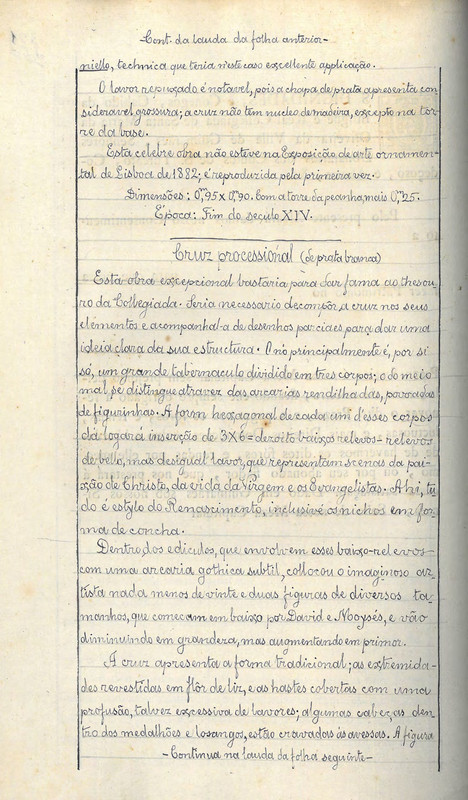 Cont. da lauda da folha anterior-
niello, technica que teria n'este caso excellente applicação.
O lavor repuxado é notavel, pois a chapa de prata apresenta con
sideravel grossura; a cruz não tem nucleo de madeira, excepto na tor-
re da base.
Esta celebre obra não esteve na Exposição de arte ornamen-
tal de Lisboa de 1882; é reproduzida pela primeira vez.
Dimensões: 0,m95 x 0,m90. Com a torre da peanha, mais 0,m25.
Época: Fim do seculo XIV.
Cruz processional (de prata branca)
Esta obra excepcional bastaria para dar fama ao thesou-
ro da Collegiada. Seria necessario decompôr a cruz nos seus
elementos e acompanhal-a de desenhos parciaes para dar uma
ideia clara da sua estructura. O nó principalmente é, por si
só, um grande tabernaculo dividido em tres corpos; o do meio
mal se distingue atravez das arcarias rendilhadas, povoadas
de figurinhas. A form hexagonal de cada um d'esses corpos
dá logar á inserção de 3X6=dezoito baixos relevos-relevos
de bello, mas desigual lavor, que representam scenas da pai-
xão de Christo, da vida da Virgem e os Evangelistas. Ahi, tu
do é estylo do Renascimento, inclusivé os nichos em for-
ma de concha.
Dentro dos ediculos, que envolvem esses baixo-relevos
com uma arcaria gothica subtil, collocou o imaginoso ar-
tista nada menos de vinte e duas figuras de diversos ta-
manhos, que começam em baixo por David e Moysés, e vão
diminuindo em grandeza, mas augmentando em primor.
A cruz apresenta a forma tradicional; as extremida-
des revestidas em flôr de liz, e as hastes cobertas com uma
profusão, talvez excessiva de lavores; algumas cabeças den
tro dos medalhões e losangos, estão cravadas ás avessas. A figura
-Continua na lauda da folha seguinte-